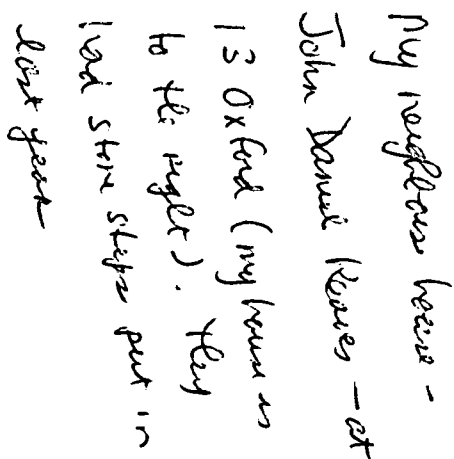 My neighbors house -
John Daniel Reeves - at
15 Oxford (my house is
to the right). They
had stone steps put in
last year